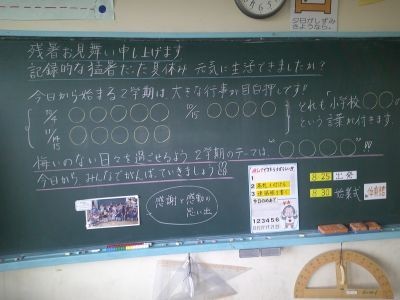 残暑お見舞い申し上げます
記録的な猛暑だった夏休み 元気に生活できましたか？
今日から始まる2学期は大きな行事が目白押しです!!
10/4 ○○○○○ 10/15 ○○○○ どれも「小学校○○の」
11/14・15 ○○○○○ という言葉が付きます。
悔いのない日々を過ごせるよう 2学期のテーマは"○○○○○"!!!
今日から みんなでがんばっていきましょう!!
感謝と感動の
思い出
1
2
3
今日のめあて
123456
8:25 出発
8:30 始業式
夕日がしずみ
さようなら。